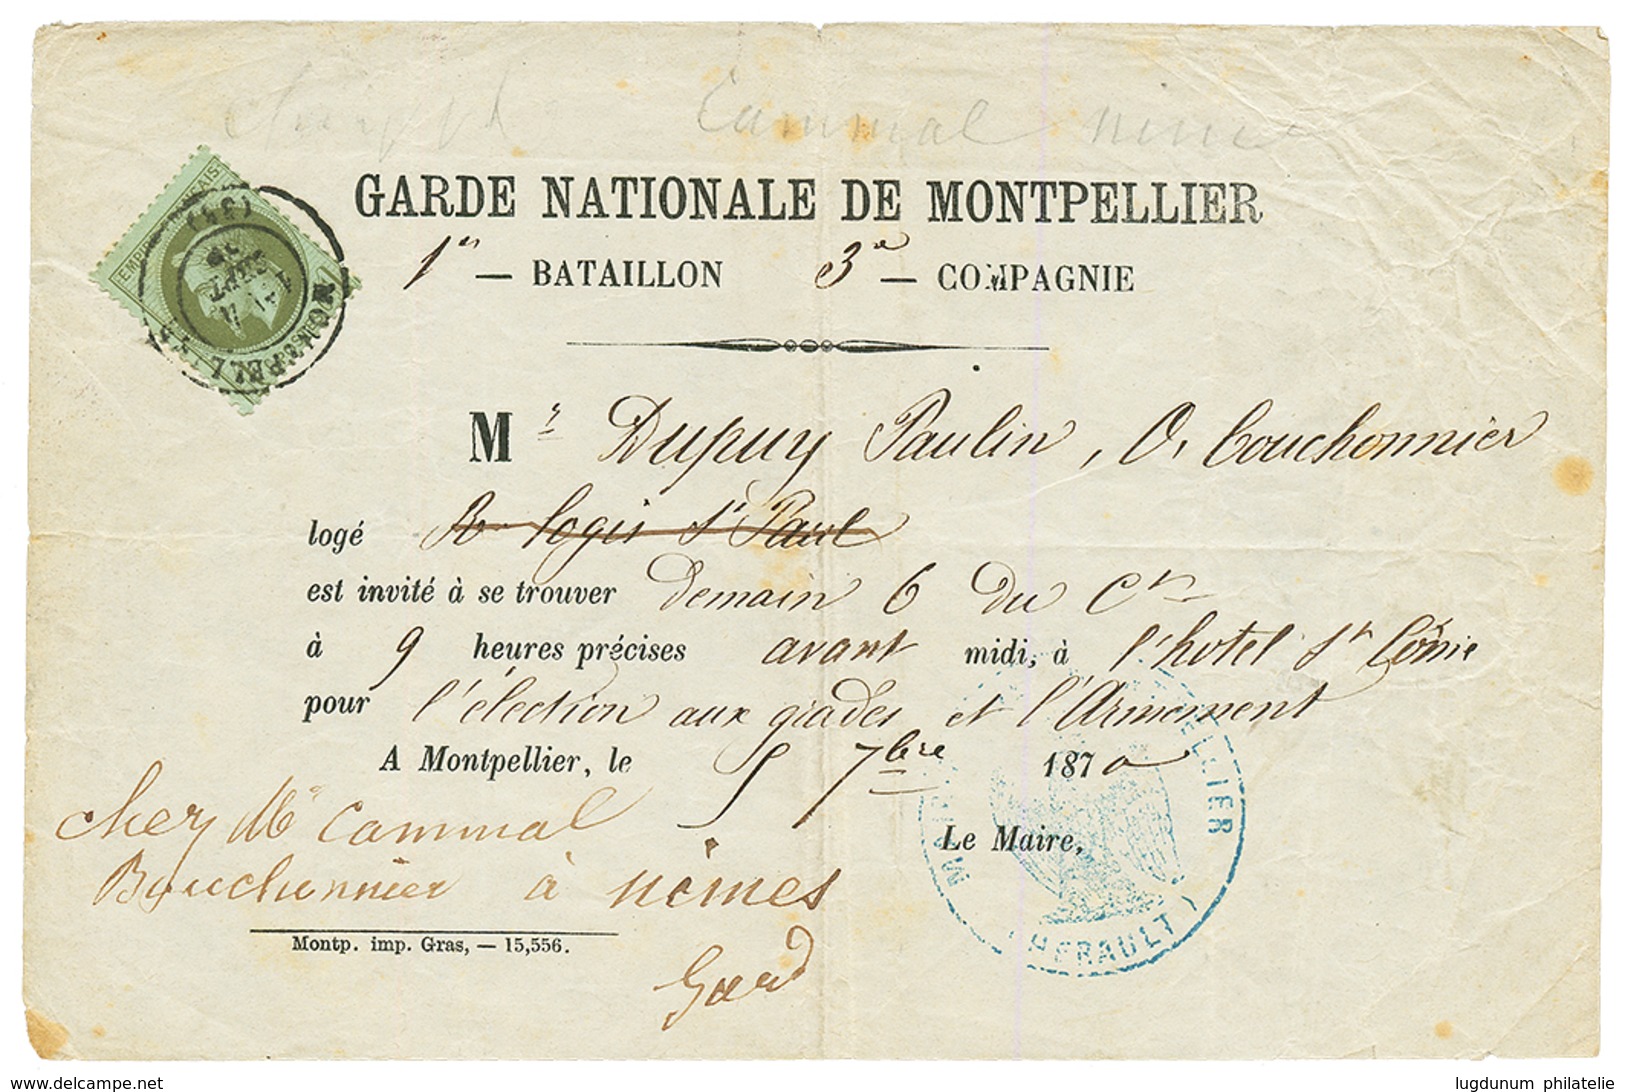 Cammal nime
GARDE NATIONALE DE MONTPELLIER
1er — BATAILLON 3e — COMPAGNIE
EMPIRE FRANÇAIS
MONTPELLIER
(33)
SEPT
70
Mr Dupuy Paulin, O. bouchonnier
logé R. logis St Paul
est invité à se trouver demain 6 du Ct
à 9 heures précises avant midi, à l'hotel St Côme
pour l'élection aux grades et l'Armement
A Montpellier, le 5 7bre 1870
Le Maire,
MONTPELLIER
(HERAULT)
chez Mr Cammal
Bouchonnier à nimes
Gard
Montp. imp. Gras, — 15,556.
www.delcampe.net
lugdunum philatelie